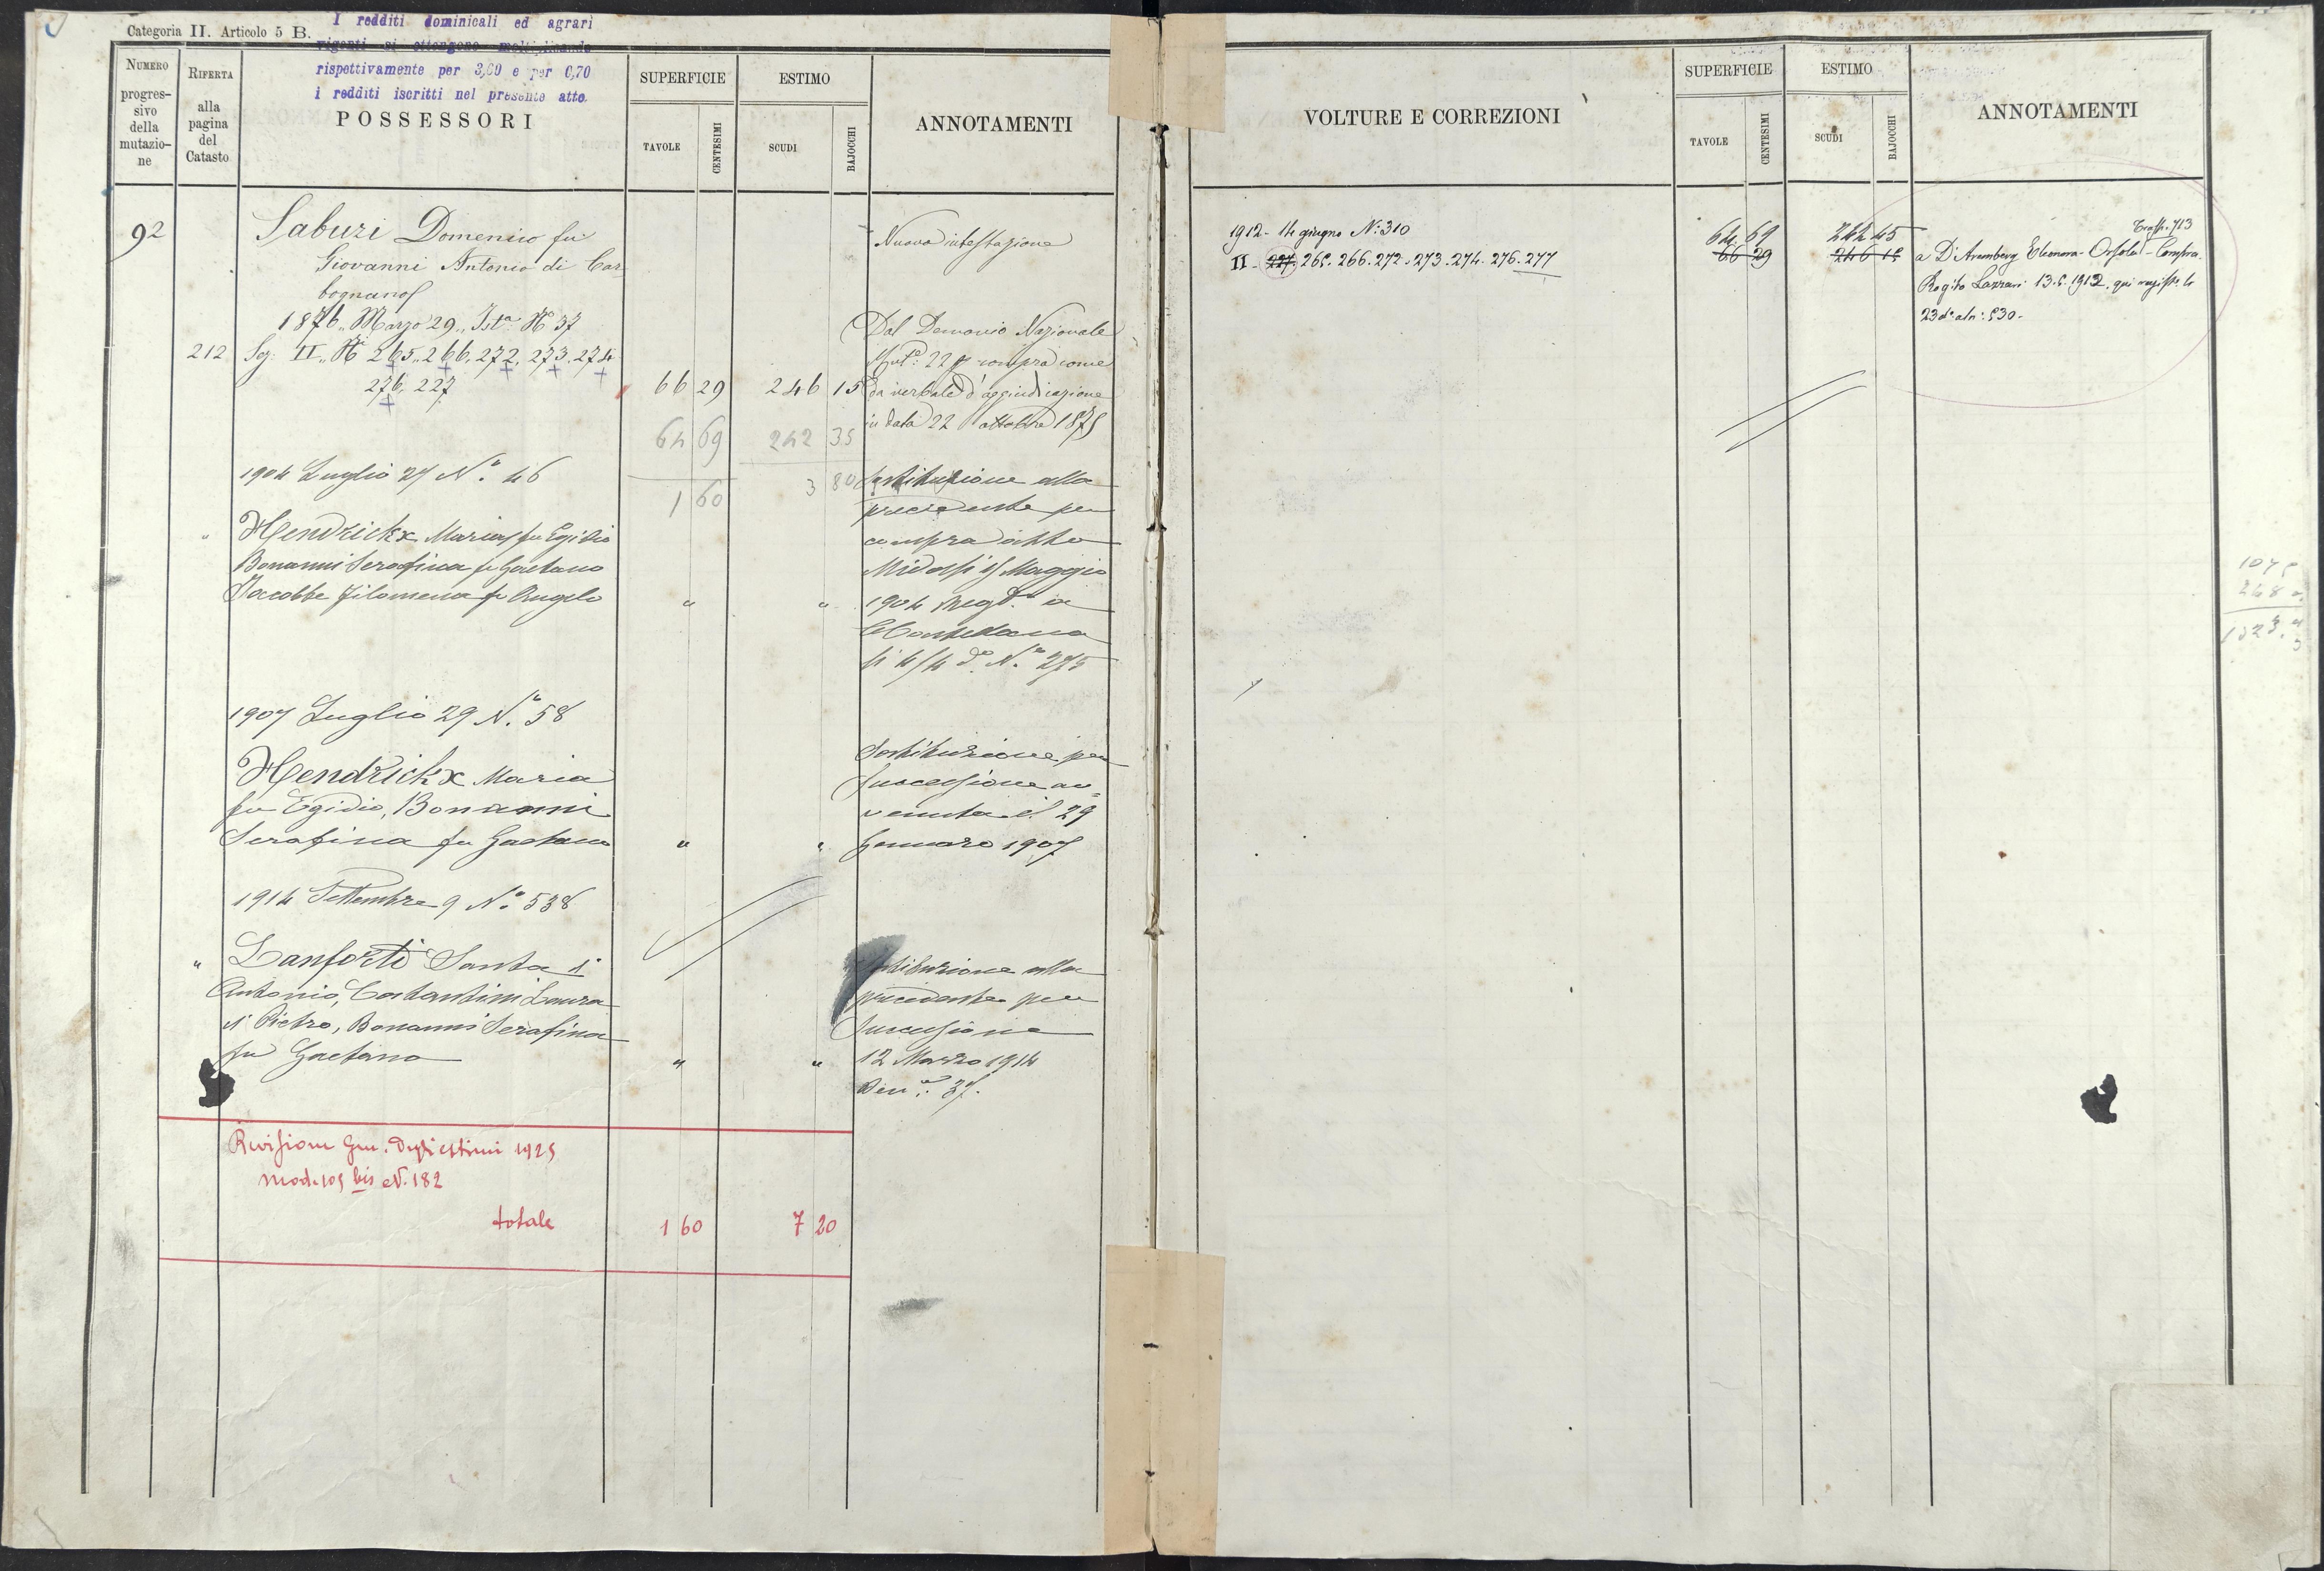 Categoria II. Articolo 5 B.
I redditi dominicali ed agrari
vigenti si ottengono moltiplicando
rispettivamente per 3,60 e per 0,70
i redditi iscritti nel presente atto.
NUMERO
progres-
sivo
della
mutazio-
ne
RIFERTA
alla
pagina
del
Catasto
POSSESSORI
SUPERFICIE
TAVOLE
CENTESIMI
ESTIMO
SCUDI
BAJOCCHI
ANNOTAMENTI
92
Saburi Domenico fu
Giovanni Antonio di Car
bognano
1876 Marzo 29 Ist.a N° 37
212 Sez. II N.i 265. 266. 272. 273. 274
276. 227
66 29 246 15
64 69 242 35
1 60 3 80
Nuova intestazione
Dal Demanio Nazionale
Mut.e 22 compra come
da verbale d'aggiudicazione
in data 22 ottobre 1875
1904 Luglio 27 N.° 46
" Hendrickx Maria fu Egidio
Bonanni Serafina fu Gaetano
Jacobbe Filomena fu Angelo " "
Sostituzione alla
precedente per
compra atto
Midossi Maggio
1904 Reg.to a
C Castellana
li 4/4 d.° N.° 275
1907 Luglio 29 N.° 58
Hendrickx Maria
fu Egidio, Bonanni
Serafina fu Gaetano " "
Sostituzione per
successione av=
venuta il 29
Gennaro 1907
1914 Settembre 9 N.° 538
" Lanforti Santa di
Antonio, Costantini Laura
di Pietro, Bonanni Serafina
fu Gaetano " "
Sostituzione alla
precedente per
successione
12 Marzo 1914
Den.a: 37.
Revisione Gen. degli estimi 1925
Mod. 105 bis N. 182
totale 1 60 7 20
VOLTURE E CORREZIONI
SUPERFICIE
TAVOLE
CENTESIMI
ESTIMO
SCUDI
BAJOCCHI
ANNOTAMENTI
1912 - 14 giugno N: 310
II - 227. 265. 266. 272. 273. 274. 276. 277
64 69
66 29
242 45
246 15
Trasp. 713
a D'Aremberg Eleonora - Orsola - Compra.
Rogito Lazzari 13.5.1912, qui regist. li
23 d° al n: 530 -